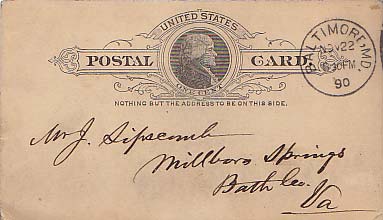 UNITED STATES
POSTAL CARD.
ONE CENT
NOTHING BUT THE ADDRESS TO BE ON THIS SIDE.
BALTIMORE, MD.
NOV 22
6 30 PM
90
Mr J. Lipscomb
Millboro Springs
Bath Co.
Va